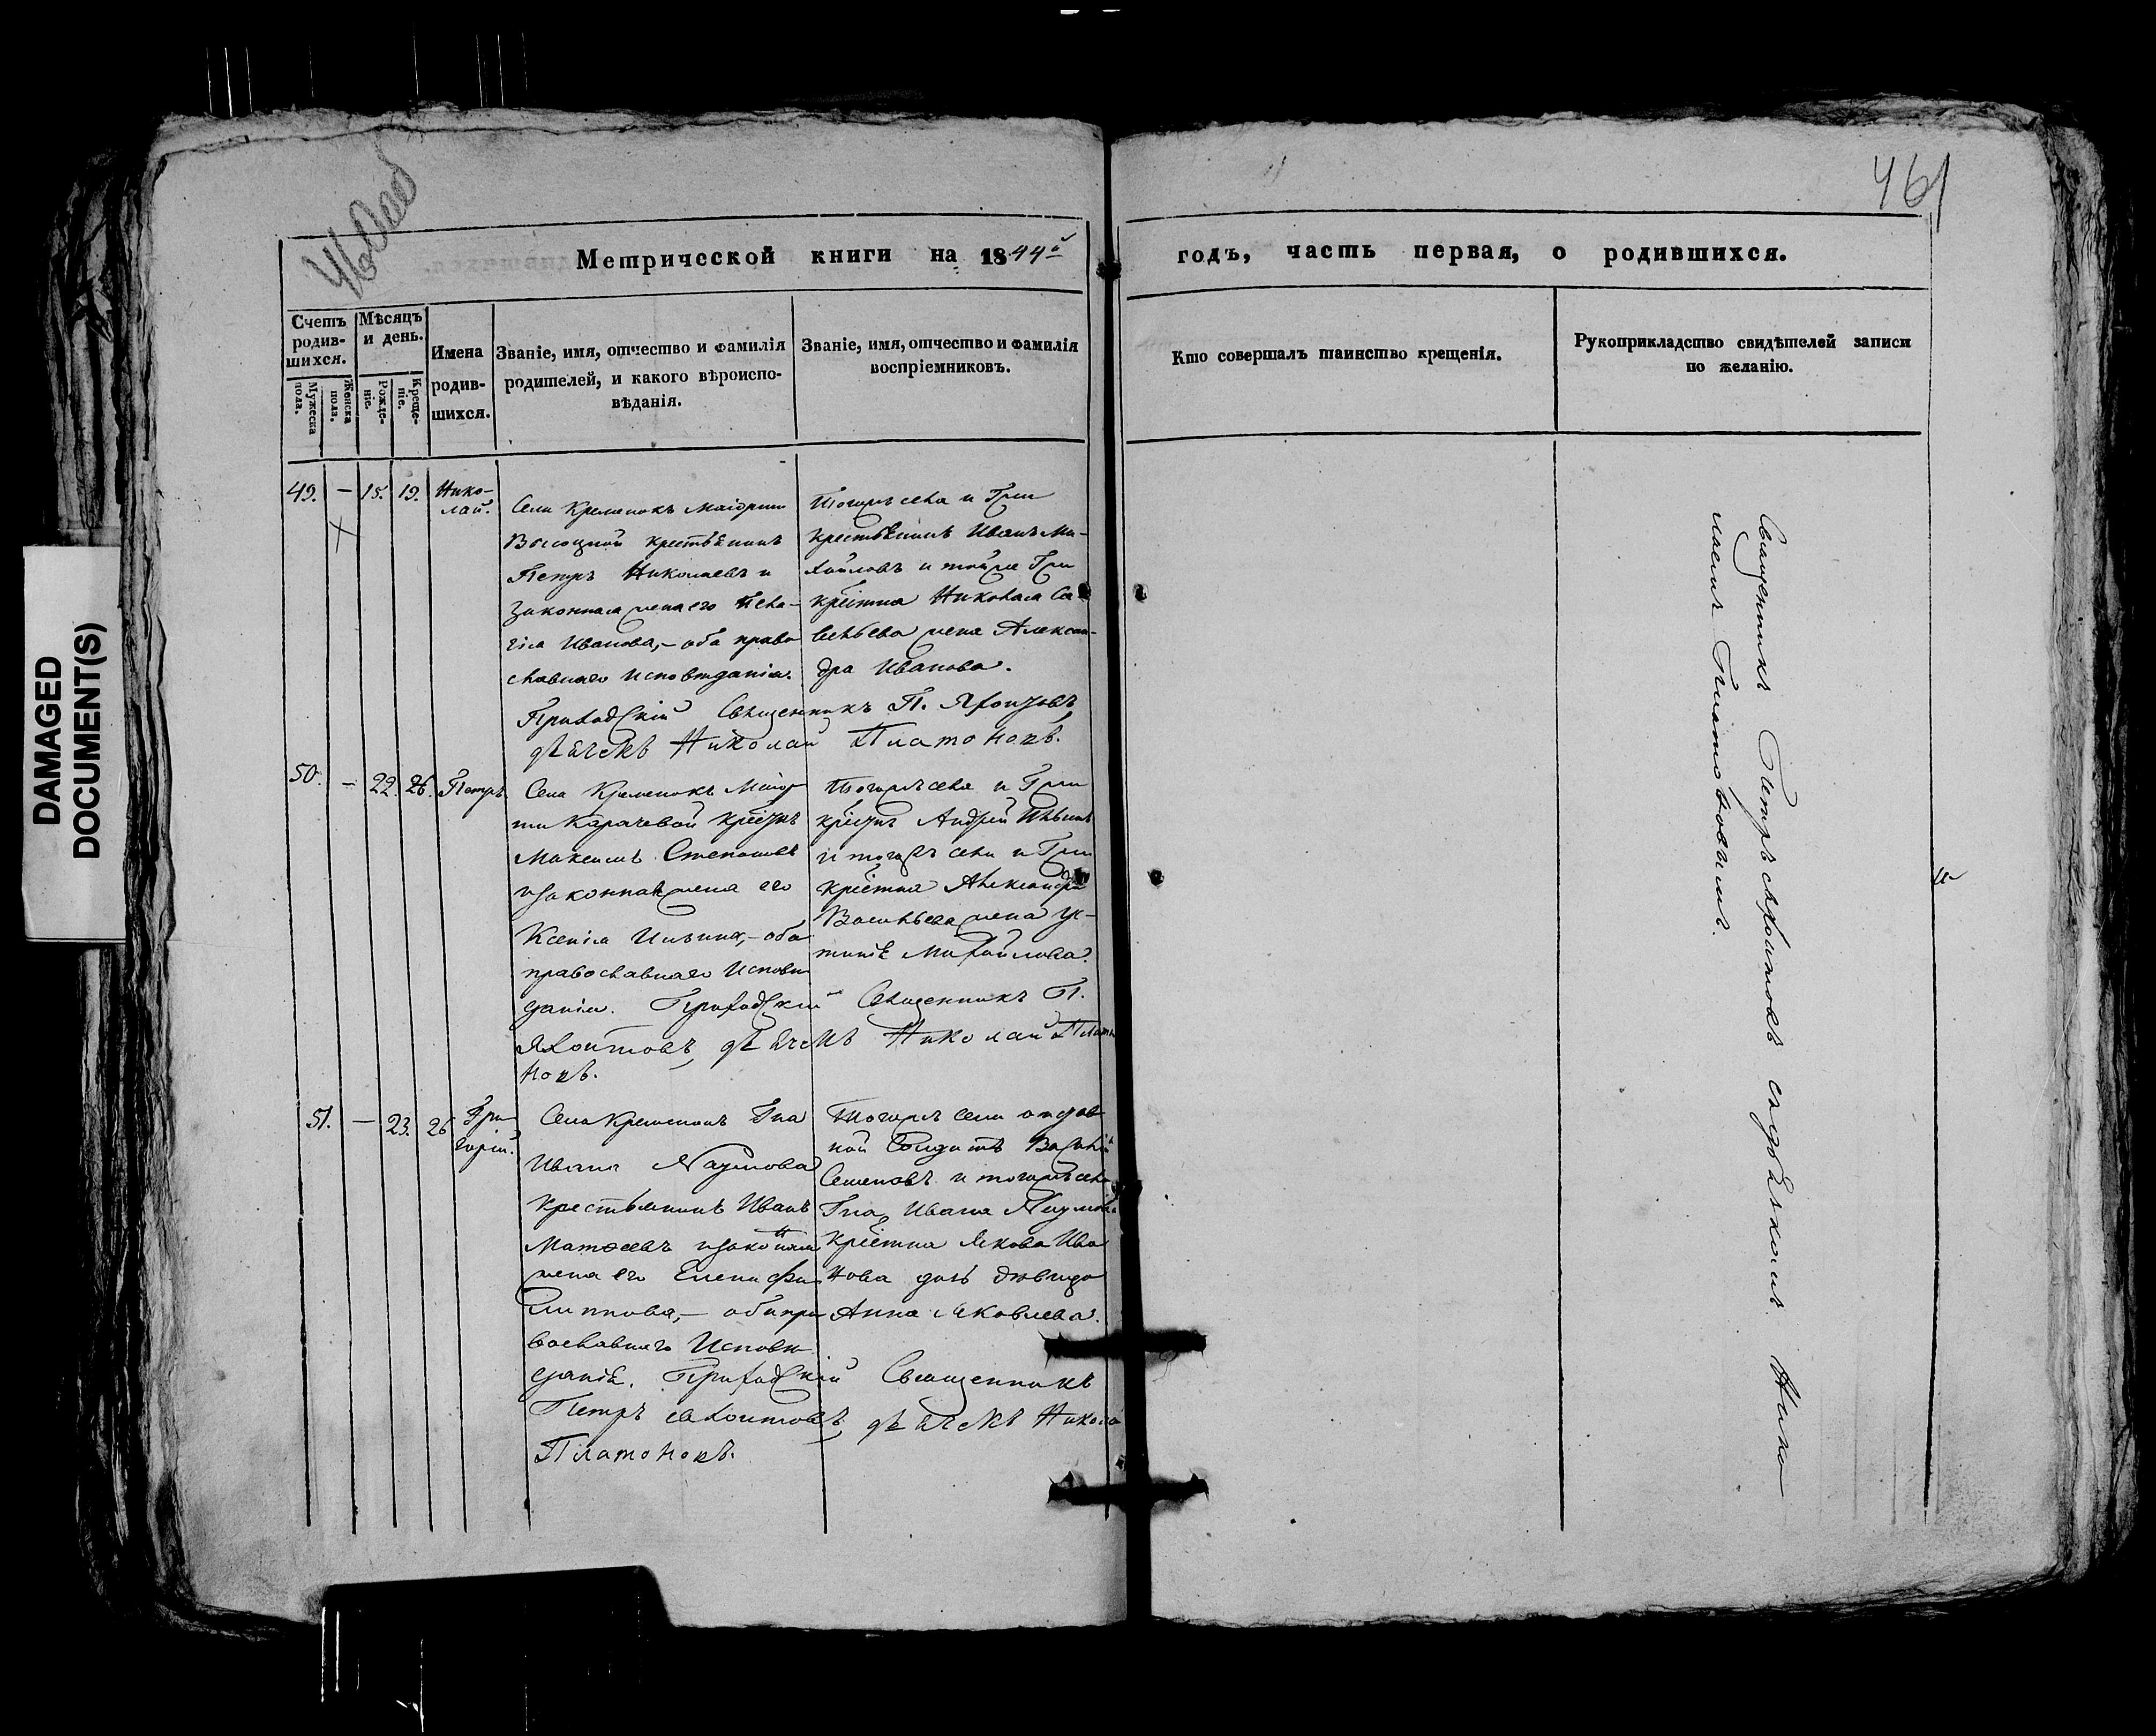 461
DAMAGED
DOCUMENT(S)
Метрической книги на 1844й
годъ, часть первая, о родившихся.
Счетъ родив-шихся.
Мужеска пола.
Женска пола.
Мѣсяцъ и день.
Рожде-ніе.
Креще-ніе.
Имена родив-шихся.
Званіе, имя, отчество и фамилія
родителей, и какого вѣроиспо-
вѣданія.
Званіе, имя, отчество и фамилія
воспріемниковъ.
Кто совершалъ таинство крещенія.
Рукоприкладство свидѣтелей записи
по желанію.
49. – 15. 19. Нико-
лай.
Села Кременокъ Маіорши
Высоцкой крестьянинъ
Петръ Николаевъ и
законная жена его Пела-
гія Иванова, – оба право
славнаго исповѣданія.
Тогожъ села и Гжи
крестьянинъ Иванъ Ми-
хайловъ и тойже Гжи
крестна Николая Са
вельева жена Алексан-
дра Иванова.
Приходскій Священникъ П. Яхонтовъ
дьячекъ Николай Платоновъ.
50. – 22. 26. Петръ
Села Кременокъ Маіор
ши Карачевой
Максимъ Степановъ
и законная жена его
Ксенія Ильина, – оба
православнаго Исповѣ
данія. Приходскій Священникъ П.
Тогожъ села и Гжи
Андрей Ильинъ
и тогожъ села и Гжи
крестна Александра
Васильева жена Ус-
тинія Михайлова.
Яхонтовъ, дьячекъ Николай Плато
новъ.
51. – 23. 26 Гри-
горій.
Села Кременокъ Гна
Ивана Наумова
крестьянинъ Иванъ
Матвеевъ и законная
жена его Елена Фи
липпова, – оба пра
вославнаго Исповѣ
данія. Приходскій Священникъ
Тогожъ села отстав
ной Солдатъ Василій
Семеновъ и тогожъ села
Гна Ивана Наумова
крестна Якова Ива
нова дочь дѣвица
Анна Яковлева.
Петръ Яхонтовъ, дьячекъ Никола
Платоновъ.
Священникъ Петръ Яхонтовъ съ дьякомъ Нико
лаемъ Платоновымъ.